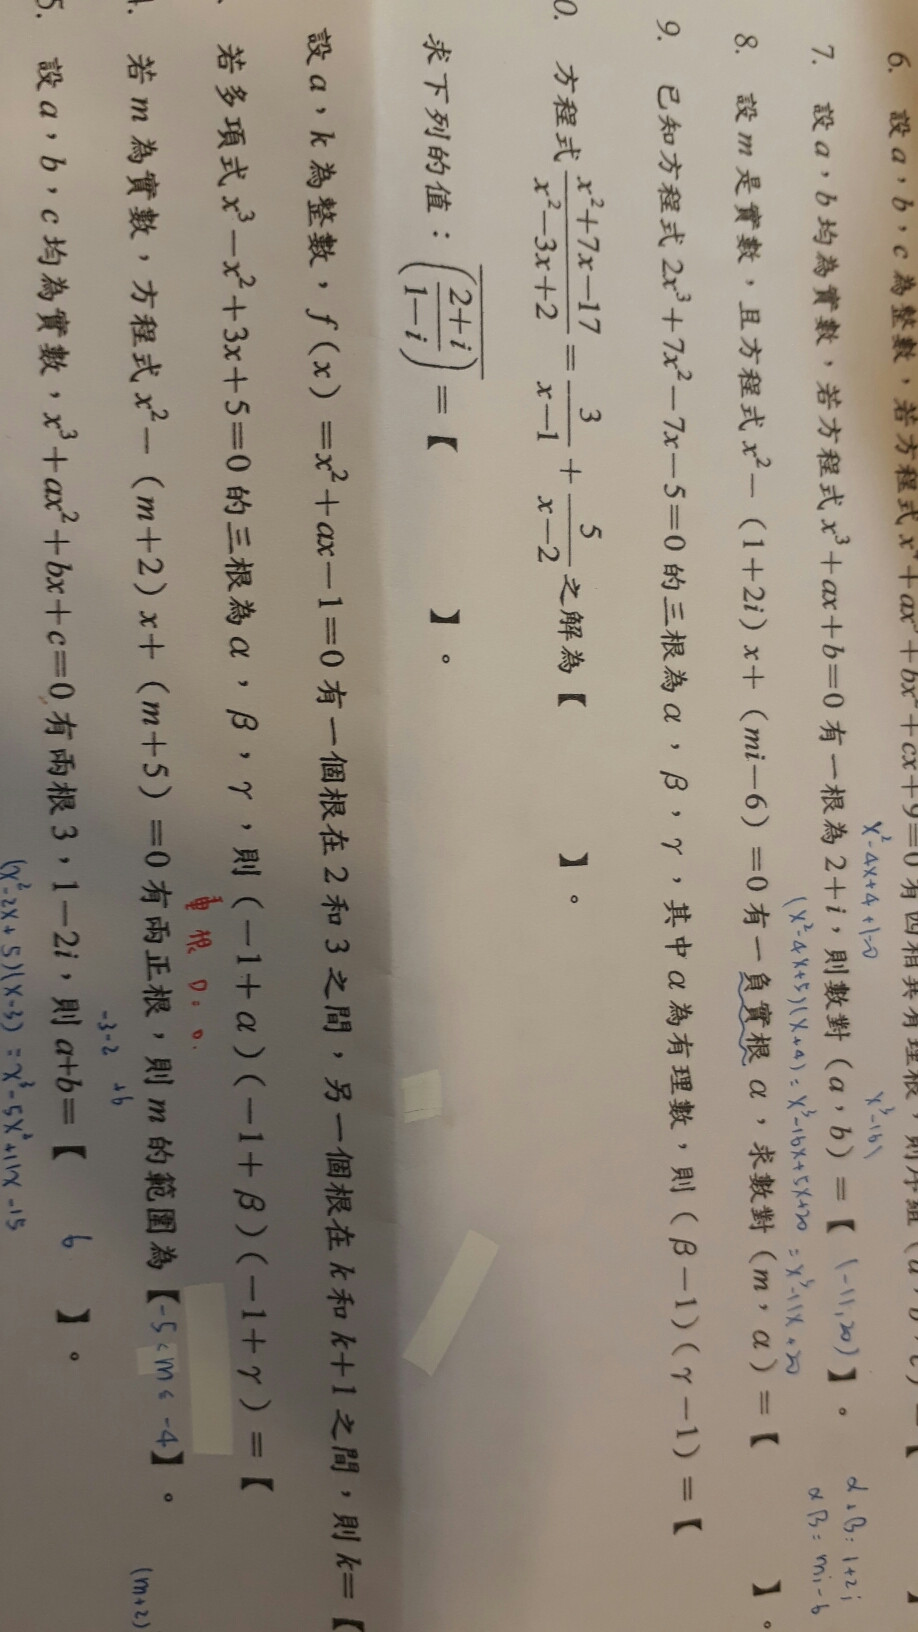 6. 設a,b,c為整數,若方程式x⁴+ax³+bx²+cx+9=0有四相異有理根,則序組(a,b,c)=【
x²-4x+4+1=0
x³-16
7. 設a,b均為實數,若方程式x³+ax+b=0有一根為2+i,則數對(a,b)=【(-11,20)】。
(x²-4x+5)(x+4)=x³-16x+5x+20=x³-11x+20
α+β=1+2i
αβ=mi-6
8. 設m是實數,且方程式x²-(1+2i)x+(mi-6)=0有一負實根α,求數對(m,α)=【 】。
9. 已知方程式2x³+7x²-7x-5=0的三根為α,β,γ,其中α為有理數,則(β-1)(γ-1)=【
0. 方程式(x²+7x-17)/(x²-3x+2)=3/(x-1)+5/(x-2)之解為【 】。
求下列的值:\overline{((2+i)/(1-i))}=【 】。
設a,k為整數,f(x)=x²+ax-1=0有一個根在2和3之間,另一個根在k和k+1之間,則k=【
若多項式x³-x²+3x+5=0的三根為α,β,γ,則(-1+α)(-1+β)(-1+γ)=【
重根 D=0.
若m為實數,方程式x²-(m+2)x+(m+5)=0有兩正根,則m的範圍為【-5<m≤-4】。
(m+2)
-3-2 +6
5. 設a,b,c均為實數,x³+ax²+bx+c=0有兩根3,1-2i,則a+b=【 6 】。
(x²-2x+5)(x-3)=x³-5x²+11x-15